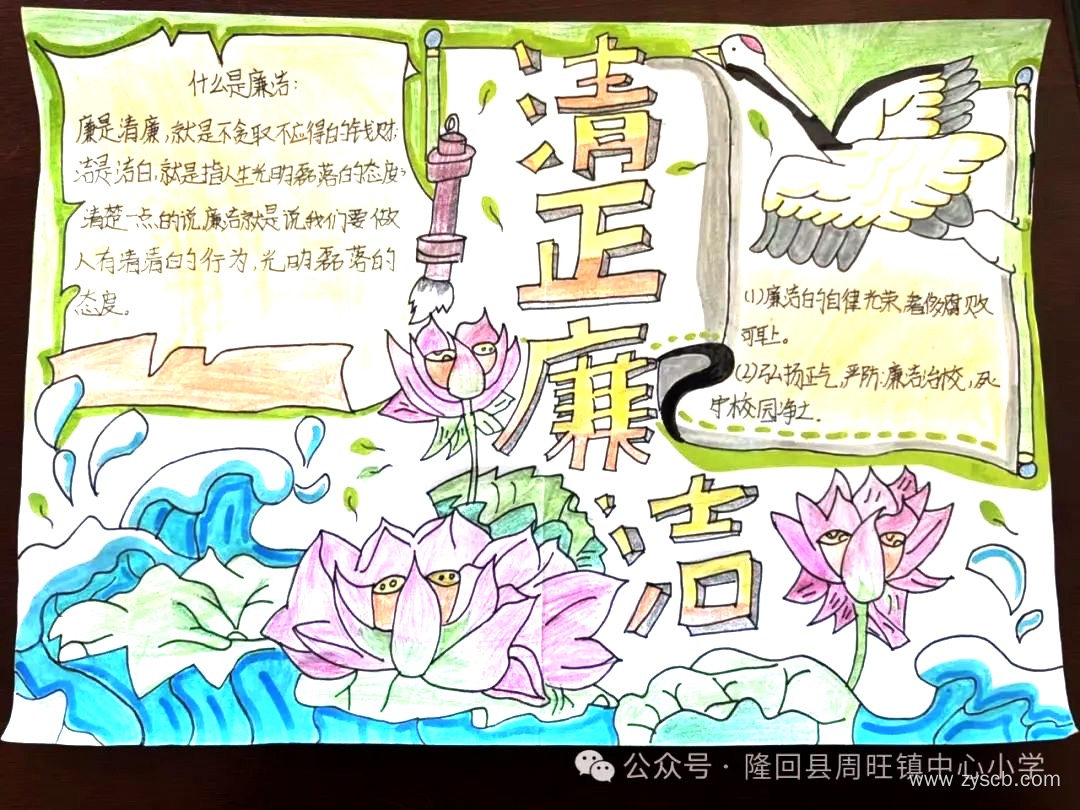 什么是廉洁:
廉是清廉,就是不贪取不应得的钱财;
洁是洁白,就是指人生光明磊落的态度。
清楚一点的说,廉洁就是说我们要做
人有清清白的行为,光明磊落的
态度。
清正廉洁
(1)廉洁的自律光荣,奢侈腐败
可耻。
(2)弘扬正气,严防,廉洁治校,
守校园净土.
公众号·隆回县周旺镇中心小学
www.zyscb.com